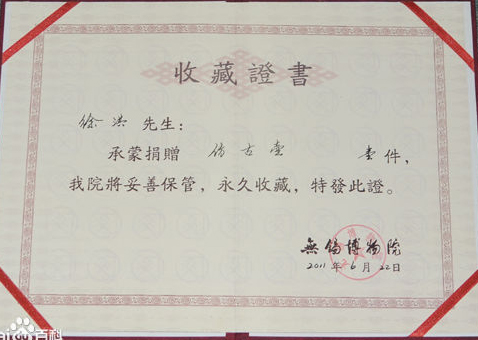 收藏證書
徐洪 先生：
承蒙捐贈 仿古壺 壹件，
我院將妥善保管，永久收藏，特發此證。
無錫博物院
2011年6月22日
百科